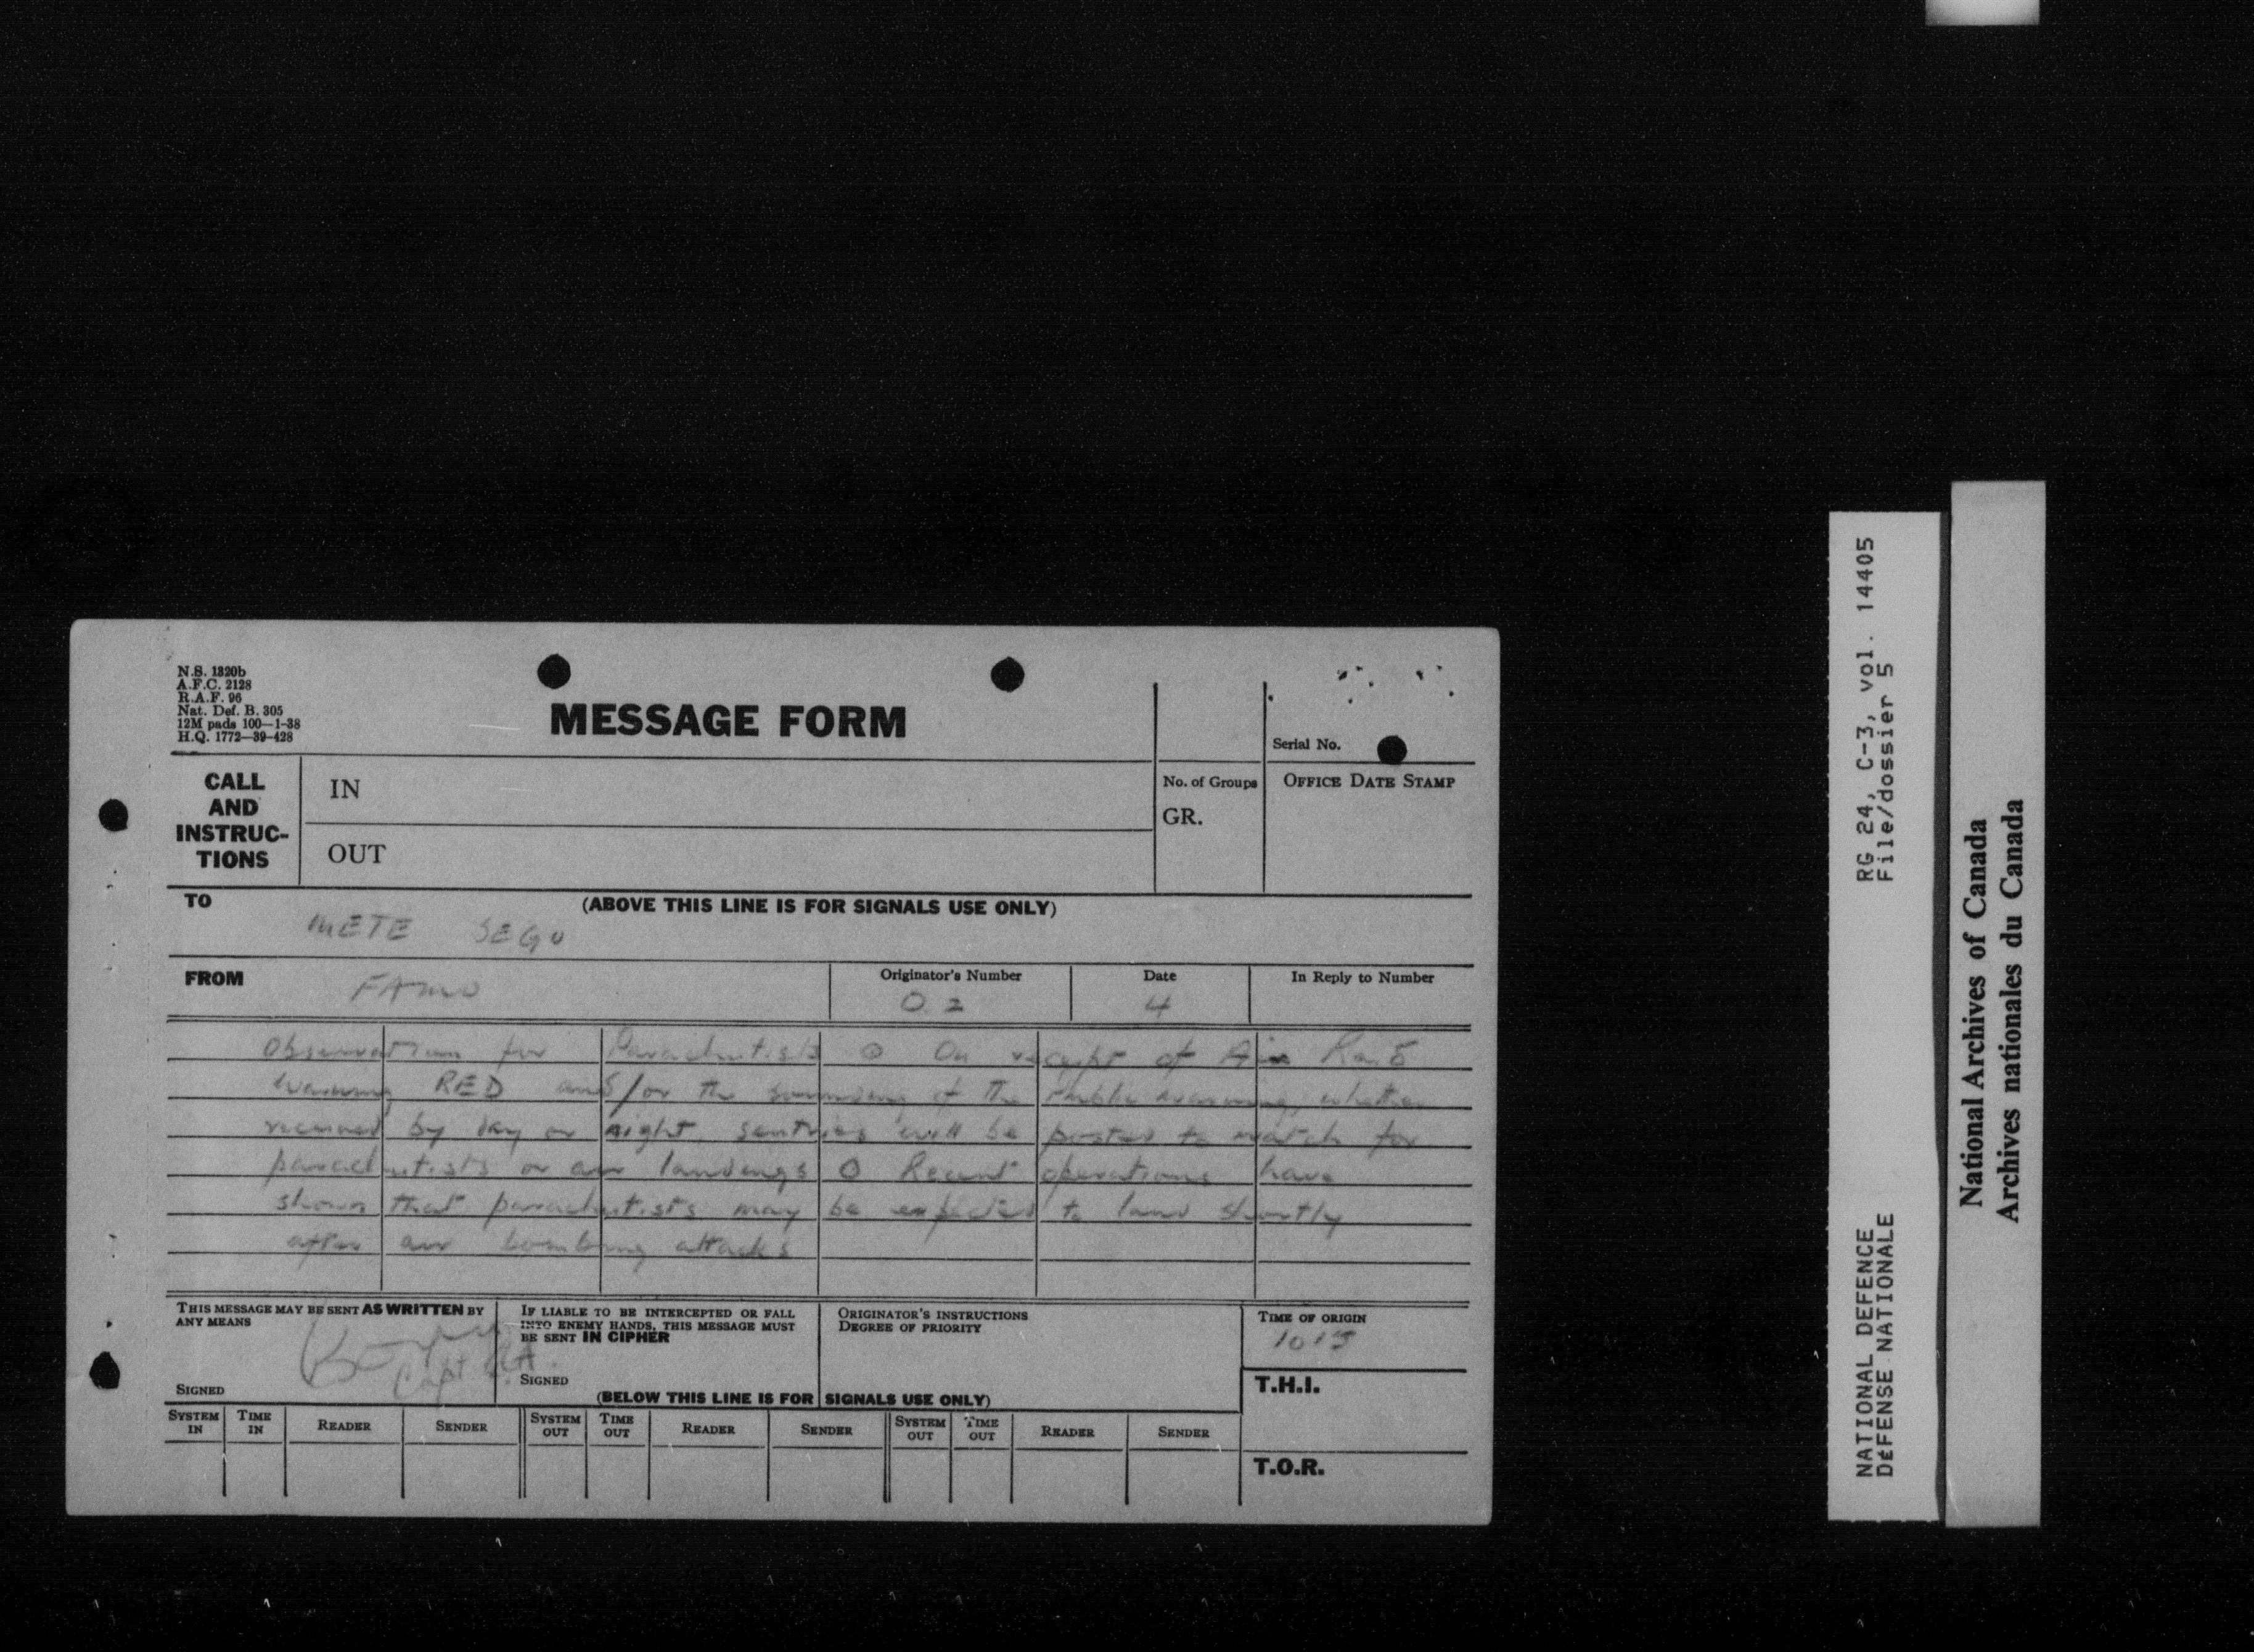 N.S. 1320b
A.F.C. 2128
R.A.F. 96
Nat. Def. B. 305
12M pads 100—1-38
H.Q. 1772—39-428
MESSAGE FORM
Serial No.
CALL AND INSTRUC-TIONS
IN
OUT
No. of Groups
GR.
OFFICE DATE STAMP
TO
(ABOVE THIS LINE IS FOR SIGNALS USE ONLY)
METE SEGU
FROM
FAMO
Originator's Number
O 2
Date
4
In Reply to Number
Observation for Parachutists O On receipt of Air Raid
Warning RED and/or the sounding of the Public warning, whether
received by day or night, sentries will be posted to watch for
parachutists or air landings O Recent operations have
shown that parachutists may be expected to land shortly
after air bombing attacks
THIS MESSAGE MAY BE SENT AS WRITTEN BY
ANY MEANS
Capt RCA.
SIGNED
IF LIABLE TO BE INTERCEPTED OR FALL
INTO ENEMY HANDS, THIS MESSAGE MUST
BE SENT IN CIPHER
SIGNED
ORIGINATOR'S INSTRUCTIONS
DEGREE OF PRIORITY
TIME OF ORIGIN
1015
T.H.I.
(BELOW THIS LINE IS FOR SIGNALS USE ONLY)
SYSTEM IN TIME IN READER SENDER SYSTEM OUT TIME OUT READER SENDER SYSTEM OUT TIME OUT READER SENDER
T.O.R.
RG 24, C-3, vol. 14405
File/dossier 5
NATIONAL DEFENCE
DÉFENSE NATIONALE
National Archives of Canada
Archives nationales du Canada